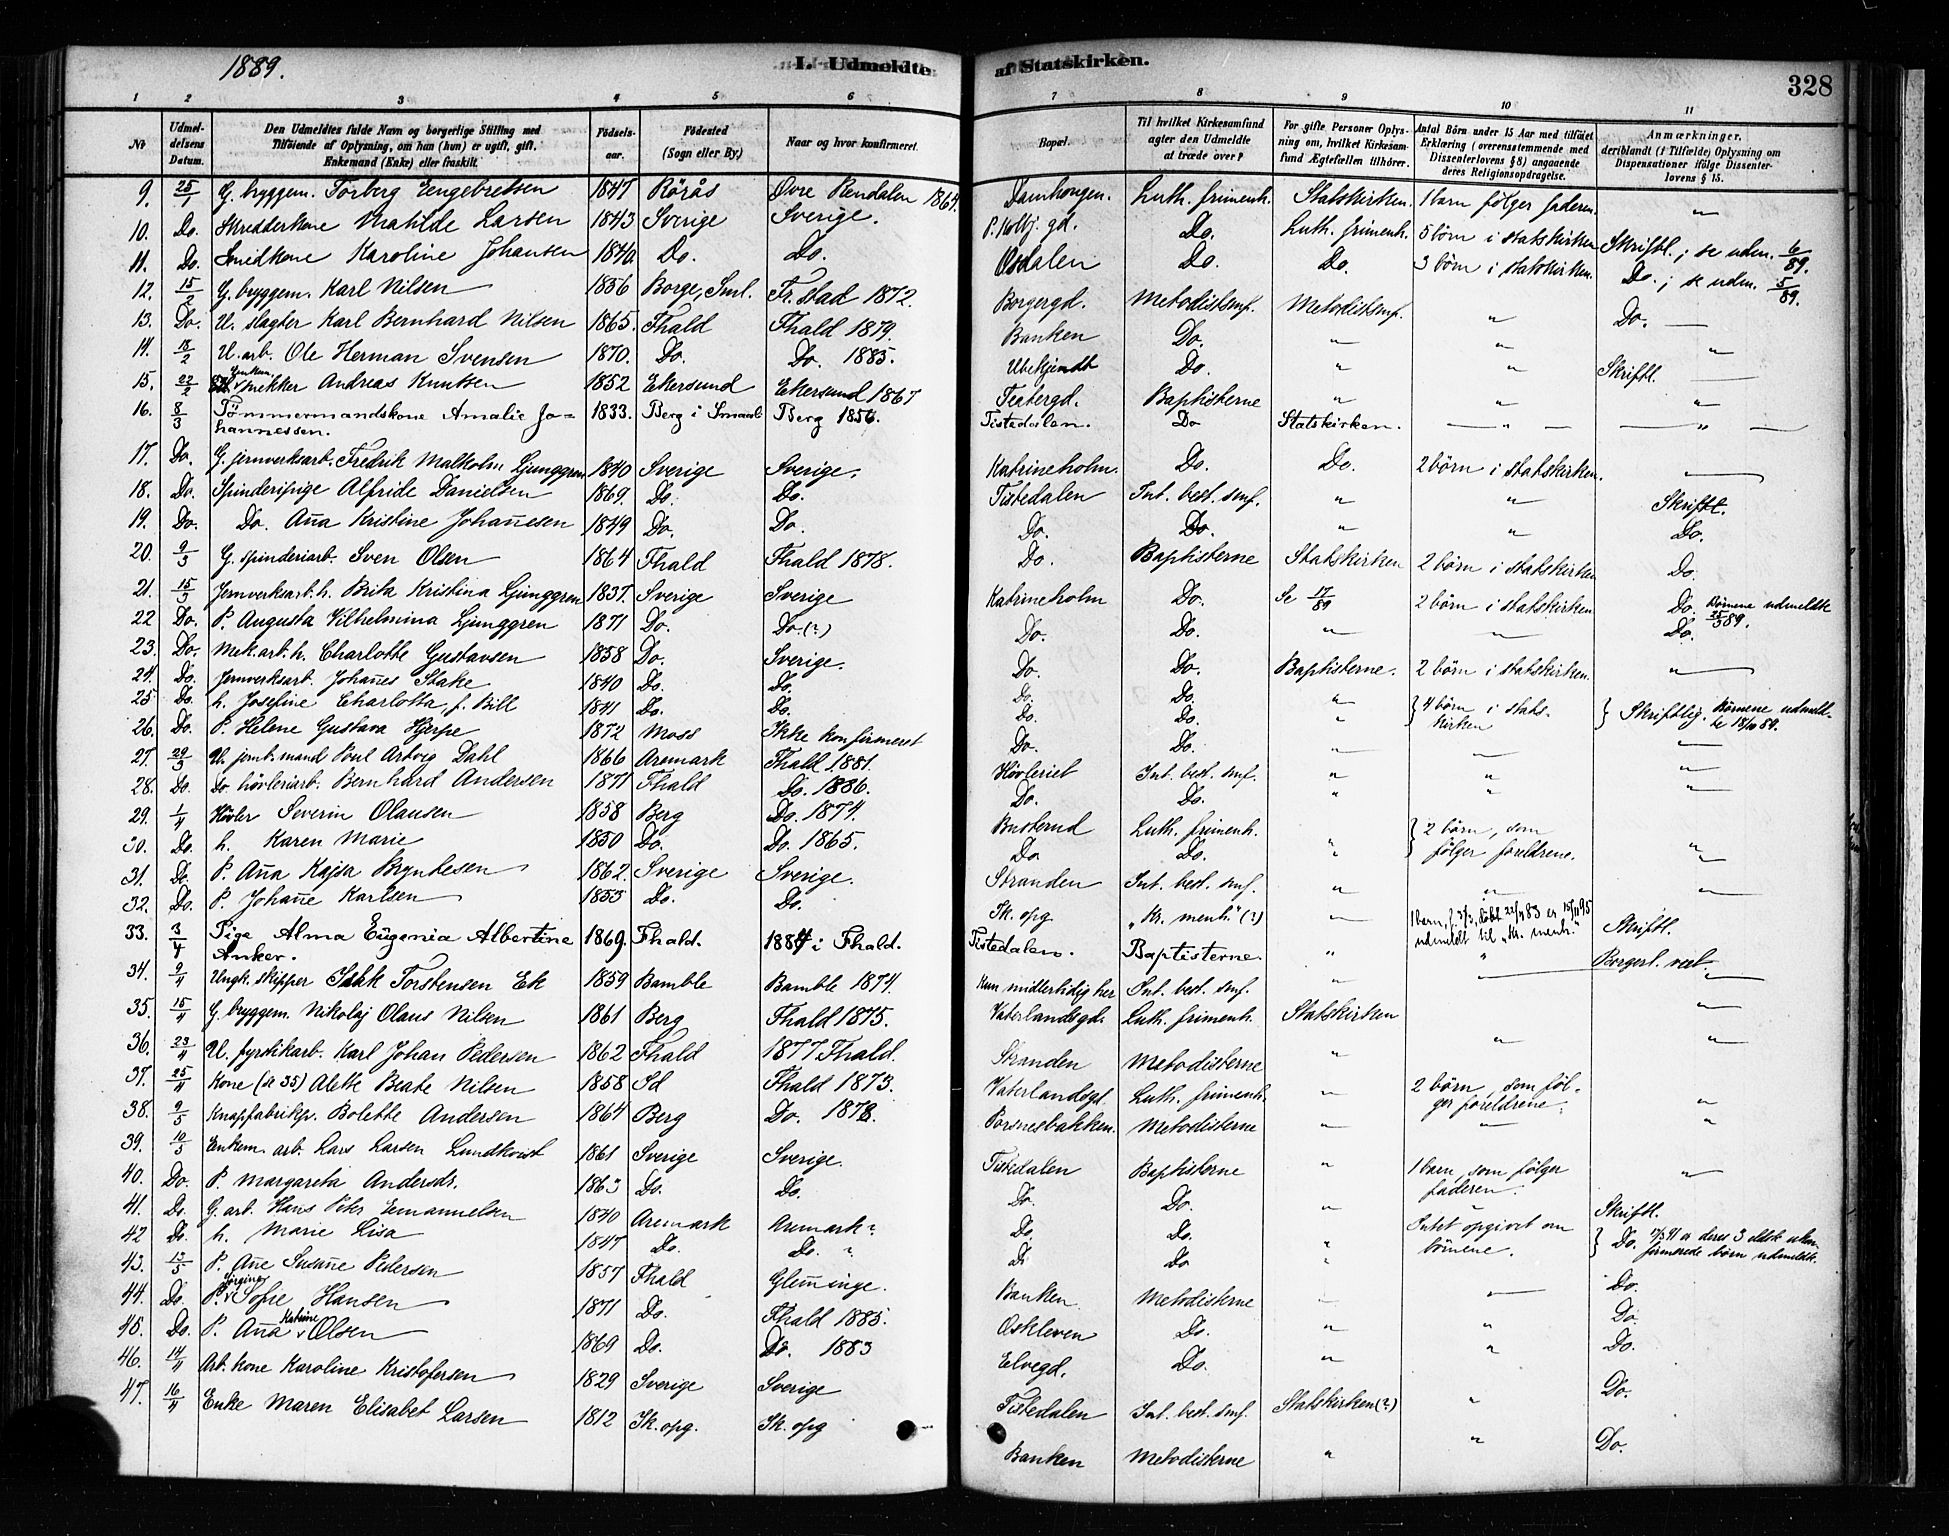 1889.
I. Udmeldte
af Statskirken.
328
1 2 3 4 5 6 7 8 9 10 11
No
Udmeldelsens Datum.
Den Udmeldtes fulde Navn og borgerlige Stilling med Tilføiende af Oplysning, om han (hun) er ugift, gift, Enkemand (Enke) eller fraskilt.
Fødselsaar.
Fødested (Sogn eller By.)
Naar og hvor konfirmeret.
Bopæl.
Til hvilket Kirkesamfund agter den Udmeldte at træde over?
For gifte Personer Oplysning om, hvilket Kirkesamfund Ægtefællen tilhører.
Antal Børn under 15 Aar med tilføiet Erklæring (overensstemmende med Dissenterlovens § 8) angaaende deres Religionsopdragelse.
Anmærkninger, deriblandt (i Tilfælde) Oplysning om Dispensationer ifølge Dissenterlovens § 15.
9. 25/1 G. bryggem. Torberg Engebretsen 1847 Rörås Övre Rendalen 1864. Damhougen. Luth. frimenh. Statskirken. 1 barn følger faderen. "
10. Do. Skredderkone Matilde Larsen 1843 Sverige Sverige. P. Kolbj. gd. Do. Luth. frimenh. 5 börn i statskirken Skriftl.; se udm. 6/89.
11. Do. Smedkone Karoline Johansen 1840. Do. Do. Osdalen Do. Do. 3 börn i statskirken. Do.; se udm. 5/89.
12. 15/2 G. bryggem. Karl Nilsen 1856 Borge, Sml. Fr.stad 1872. Borgergd. Metodistsmf. Metodistsmf. " Do.
13. Do. U. slagter Karl Bernhard Nilsen 1865. Fhald Fhald 1879. Banken Do. " " "
14. 18/2 U. arb. Ole Herman Svensen 1870. Do. Do. 1885. Ubekjendt Do. " " Skriftl.
15. 22/2 Enkem. snekker Andreas Knutsen 1852 Ekersund Ekersund 1867 Festergd. Baptisterne " " "
16. 8/3 Tömmermandskone Amalie Johannessen. 1833. Berg i Smaal. Berg 1856. Tistedalen. Do Statskirken. " "
17. Do. G. jernverksarb. Fredrik Malkolm Ljunggren 1840 Sverige Sverige. Katrineholm. Do. Do. 2 börn i statskirken.
18. Do. Spinderipige Alfride Danielsen 1869. Do. Do. Tistedalen Int. best. smf. " " Skriftl.
19. Do. Do. Aña Kristine Johañesen 1849 Do. Do. Do. Do. " " Do.
20. 9/3 G. spinderiarb. Sven Olsen 1864 Fhald Fhald 1878. Do. Baptisterne Statskirken 2 börn i statskirken Do.
21. 15/3 Jernverksarb. h. Brita Kristina Ljunggren 1837. Sverige Sverige Katrineholm Do. Se 17/89 2 börn i statskirken Do. Börnene udmeldte 25/3 89.
22 Do. P. Augusta Vilhelmina Ljunggren 1871 Do. Do. (?) Do. Do. " Do.
23. Do. Mek. arb. h. Charlotte Gustavsen 1858 Do. Sverige. Do. Do. Baptisterne. 2 börn i statskirken. "
24. Do. Jernverksarb. Johañes Stake 1840 Do. Do. Do. Do. " } 4 börn i statskirken } Skriftlig. Börnene udmeldte
25 Do. h. Josefine Charlotta, f. Bill 1841 Do. Do. Do. Do. "
26. Do. P. Helene Gustava Hjerpe 1872 Moss Ikke konfirmeret Do. Do. "
27. 29/3 U. jernb. mand Poul Artvig Dahl 1866 Aremark Fhald 1881. Hövleriet Int. best. smf. " " "
28. Do. Do hövleriarb. Bernhard Andersen 1871 Fhald Do. 1886. Do. Do. " " "
29. 1/4 Hövler Severin Olausen 1858 Berg Do. 1874. Busterud Luth. frimenh. " } 2 börn, som følger foreldrene.
30. Do. h. Karen Marie 1850 Do. Do. 1865. Do Do. " "
31. Do. P. Aña Kajsa Bryntesen 1862. Sverige Sverige. Stranden Int. best. smf. " " "
32. Do. P. Johañe Karlsen 1855 Do. Do. Ik. opg „Kr. menh." (?) 1 barn, döbt 22/4 83 er 15/11 95 udmeldt til „Kr. menh." Skriftl.
33. 3/4 Pige Alma Eugenia Albertine Anker. 1869. Fhald. 1884 i Fhald. Tistedalen. Baptisterne. " " Borgerl. viet.
34. 9/4 Ungk. skipper Isak Torstensen Ek 1859 Bamble Bamble 1874. Kun midlertidig her Int. best. smf. "
35. 15/4 G. bryggem. Nikolaj Olaus Nilsen 1861 Berg Fhald 1875. Vaterlandsgd. Luth. frimenh. Statskirken "
36. 23/4 U. fyrstikarb. Karl Johan Pedersen 1862 Fhald 1877 Fhald. Stranden Metodisterne " " "
37. 25/4 Kone (se 35) Alette Beate Nilsen 1858 Id Fhald 1873. Vaterlandsgd. Luth. frimenh. " 2 börn, som følger foreldrene. "
38. 9/5 Knapfabrikp. Bolette Andersen 1864 Berg Do. 1878. Porsnesbakken. Metodisterne " "
39. 10/5 Enkem. arb. Lars Larsen Lundkvist 1861 Sverige Sverige. Tistedalen Baptisterne " 1 barn som følger faderen. "
40. Do. P. Margareta Andersdr. 1863 Do. Do. Do. Do. " " Skriftl.
41. Do. G. arb. Hans Peter Emanuelsen 1840 Aremark Aremark? Do. Do. Intet opgivet om börnene. } Do. er deres 3 eldste ukonfirmerede börn udmeldt.
42 Do. h. Marie Lisa 1847 Do. Do. ? Do Do "
43. 13/5 P. Añe Susañe Pedersen 1857 Fhald Glem̄inge. Banken Metodisterne Do.
44. Do. P. Jörgine Sofie Hansen 1871 Do. Fhald 1885. Oskleven Do. " " Do.
45. Do. P. Aña Katrine Olsen 1869 Do. Do. 1883 Elvegd. Do. " " Do.
46. 14/4 Arb. kone Karoline Kristofersen 1829 Sverige Sverige Tistedalen Int. best. smf. Statskirken (?) " Do.
47. 16/4 Enke Maren Elisabet Larsen 1812 Ik. opg. Ik. opg Banken Metodisterne " " Do.